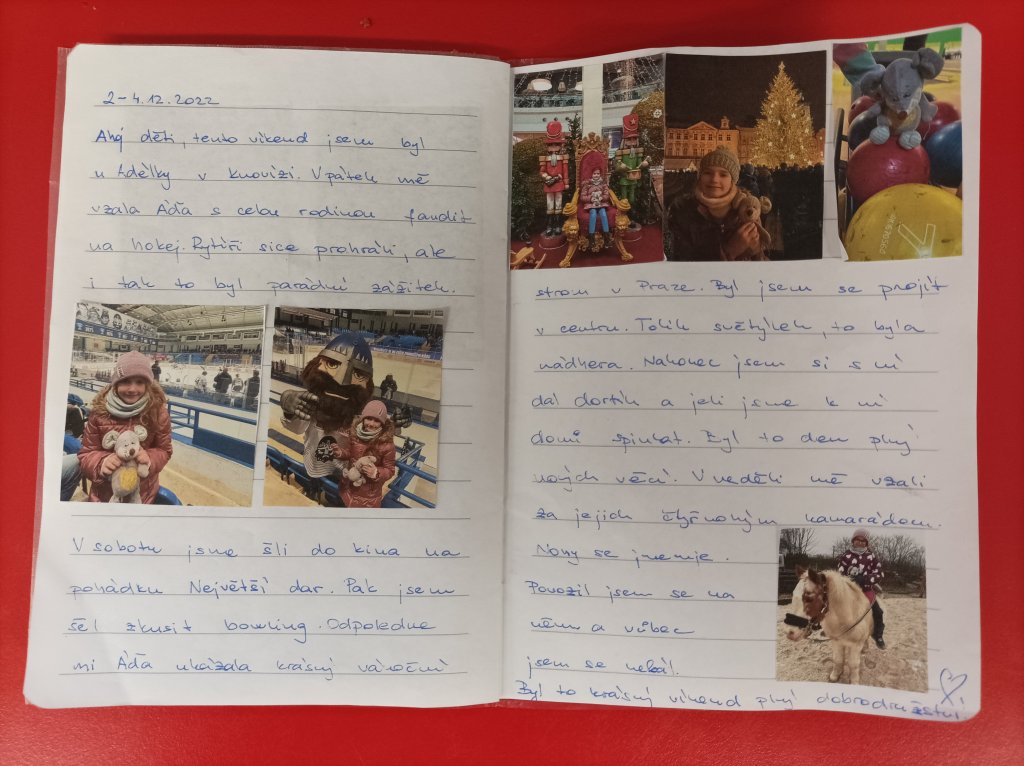 2-4.12.2022
Ahoj děti, tento víkend jsem byl
u Adélky v Knovízi. V pátek mě
vzala Áďa s celou rodinou fandit
na hokej. Rytíři sice prohráli, ale
i tak to byl parádní zážitek.
V sobotu jsme šli do kina na
pohádku Největší dar. Pak jsem
šel zkusit bowling. Odpoledne
mi Áďa ukázala krásný vánoční
strom v Praze. Byl jsem se projít
v centru. Tolik světýlek, to byla
nádhera. Nakonec jsem si s ní
dal dortík a jeli jsme k ní
domů spinkat. Byl to den plný
nových věcí. V neděli mě vzali
za jejich čtyřnohým kamarádem.
Nony se jmenuje.
Povozil jsem se na
něm a vůbec
jsem se nebál.
Byl to krásný víkend plný dobrodružství.